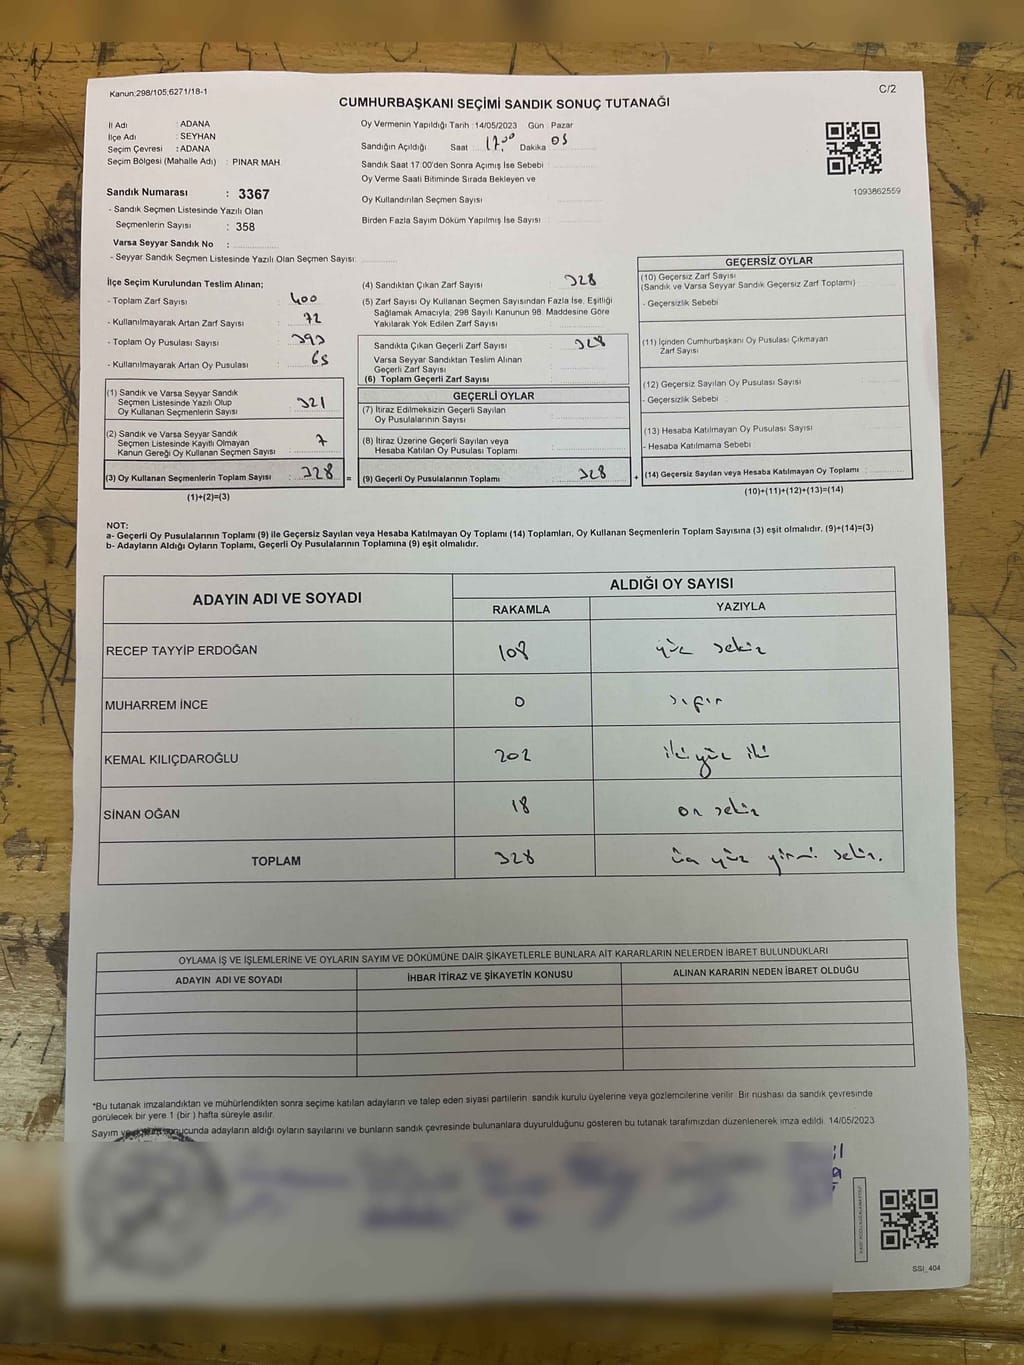 Kanun:298/105;6271/18-1
C/2
CUMHURBAŞKANI SEÇİMİ SANDIK SONUÇ TUTANAĞI
İl Adı : ADANA
İlçe Adı : SEYHAN
Seçim Çevresi : ADANA
Seçim Bölgesi (Mahalle Adı) : PINAR MAH
Sandık Numarası : 3367
- Sandık Seçmen Listesinde Yazılı Olan
Seçmenlerin Sayısı : 358
Varsa Seyyar Sandık No :
- Seyyar Sandık Seçmen Listesinde Yazılı Olan Seçmen Sayısı:
Oy Vermenin Yapıldığı Tarih :14/05/2023 Gün : Pazar
Sandığın Açıldığı Saat 17.00 Dakika 05
Sandık Saat 17:00'den Sonra Açımış İse Sebebi :
Oy Verme Saati Bitiminde Sırada Bekleyen ve
Oy Kullandırılan Seçmen Sayısı :
Birden Fazla Sayım Döküm Yapılmış İse Sayısı :
1093862559
İlçe Seçim Kurulundan Teslim Alınan;
- Toplam Zarf Sayısı : 400
- Kullanılmayarak Artan Zarf Sayısı : 72
- Toplam Oy Pusulası Sayısı : 393
- Kullanılmayarak Artan Oy Pusulası : 65
(1) Sandık ve Varsa Seyyar Sandık
Seçmen Listesinde Yazılı Olup
Oy Kullanan Seçmenlerin Sayısı : 321
(2) Sandık ve Varsa Seyyar Sandık
Seçmen Listesinde Kayıtlı Olmayan
Kanun Gereği Oy Kullanan Seçmen Sayısı : 7
(3) Oy Kullanan Seçmenlerin Toplam Sayısı : 328 =
(1)+(2)=(3)
(4) Sandıktan Çıkan Zarf Sayısı : 328
(5) Zarf Sayısı Oy Kullanan Seçmen Sayısından Fazla İse, Eşitliği
Sağlamak Amacıyla; 298 Sayılı Kanunun 98. Maddesine Göre
Yakılarak Yok Edilen Zarf Sayısı :
Sandıkta Çıkan Geçerli Zarf Sayısı : 328
Varsa Seyyar Sandıktan Teslim Alınan
Geçerli Zarf Sayısı :
(6) Toplam Geçerli Zarf Sayısı :
GEÇERLİ OYLAR
(7) İtiraz Edilmeksizin Geçerli Sayılan
Oy Pusulalarının Sayısı :
(8) İtiraz Üzerine Geçerli Sayılan veya
Hesaba Katılan Oy Pusulası Toplamı :
(9) Geçerli Oy Pusulalarının Toplamı : 328 +
GEÇERSİZ OYLAR
(10) Geçersiz Zarf Sayısı
(Sandık ve Varsa Seyyar Sandık Geçersiz Zarf Toplamı) :
- Geçersizlik Sebebi :
(11) İçinden Cumhurbaşkanı Oy Pusulası Çıkmayan
Zarf Sayısı :
(12) Geçersiz Sayılan Oy Pusulası Sayısı :
- Geçersizlik Sebebi :
(13) Hesaba Katılmayan Oy Pusulası Sayısı :
- Hesaba Katılmama Sebebi :
(14) Geçersiz Sayılan veya Hesaba Katılmayan Oy Toplamı :
(10)+(11)+(12)+(13)=(14)
NOT:
a- Geçerli Oy Pusulalarının Toplamı (9) ile Geçersiz Sayılan veya Hesaba Katılmayan Oy Toplamı (14) Toplamları, Oy Kullanan Seçmenlerin Toplam Sayısına (3) eşit olmalıdır. (9)+(14)=(3)
b- Adayların Aldığı Oyların Toplamı, Geçerli Oy Pusulalarının Toplamına (9) eşit olmalıdır.
ADAYIN ADI VE SOYADI
ALDIĞI OY SAYISI
RAKAMLA YAZIYLA
RECEP TAYYİP ERDOĞAN 108 yüz sekiz
MUHARREM İNCE 0 sıfır
KEMAL KILIÇDAROĞLU 202 iki yüz iki
SİNAN OĞAN 18 on sekiz
TOPLAM 328 üç yüz yirmi sekiz.
OYLAMA İŞ VE İŞLEMLERİNE VE OYLARIN SAYIM VE DÖKÜMÜNE DAİR ŞİKAYETLERLE BUNLARA AİT KARARLARIN NELERDEN İBARET BULUNDUKLARI
ADAYIN ADI VE SOYADI İHBAR İTİRAZ VE ŞİKAYETİN KONUSU ALINAN KARARIN NEDEN İBARET OLDUĞU
*Bu tutanak imzalandıktan ve mühürlendikten sonra seçime katılan adayların ve talep eden siyasi partilerin sandık kurulu üyelerine veya gözlemcilerine verilir. Bir nushası da sandık çevresinde
görülecek bir yere 1 (bir ) hafta süreyle asılır.
Sayım ve sonucunda adayların aldığı oyların sayılarını ve bunların sandık çevresinde bulunanlara duyurulduğunu gösteren bu tutanak tarafımızdan düzenlenerek imza edildi. 14/05/2023
SSI_404